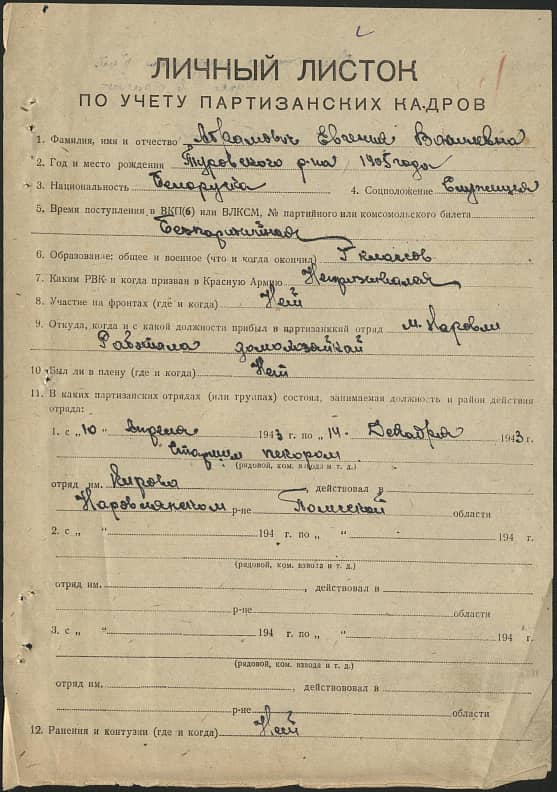 ЛИЧНЫЙ ЛИСТОК
ПО УЧЕТУ ПАРТИЗАНСКИХ КАДРОВ
1. Фамилия, имя и отчество Абрамович Евгения
2. Год и место рождения Туровского р-на 1905 годы
3. Национальность Белоруска 4. Соцположение Служащая
5. Время поступления в ВКП(б) или ВЛКСМ, № партийного или комсомольского билета
Безпартийная
6. Образование: общее и военное (что и когда окончил) 7 классов
7. Каким РВК и когда призван в Красную Армию Непризывалая
8. Участие на фронтах (где и когда) Нет
9. Откуда, когда и с какой должности прибыл в партизанккий отряд м. Наровли
Работала домохзайкай
10. Был ли в плену (где и когда) Нет
11. В каких партизанских отрядах (или группах) состоял, занимаемая должность и район действия
отряда:
1. с „10 " Апреля 1943 г. по „14 " Декабря 1943 г.
Старшим пекором
(рядовой, ком. взвода и т. д.)
отряд им. Кирова , действовал в
Наровлянском р-не Полесской области
2. с „ " 194 г. по „ " 194 г.
(рядовой, ком. взвода и т. д.)
отряд им. , действовал в
р-не области
3. с „ " 194 г. по „ " 194 г.
(рядовой, ком. взвода и т. д.)
отряд им. , действововал в
р-не области
12. Ранения и контузии (где и когда) Нет